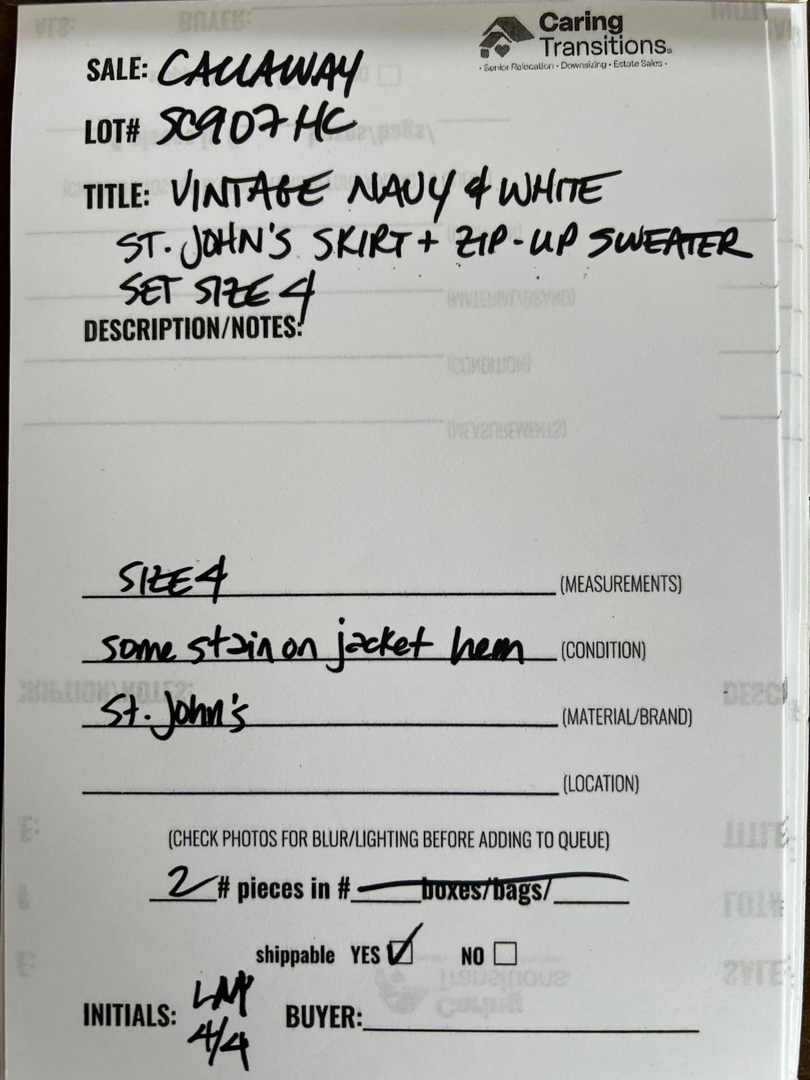 Caring
Transitions®
• Senior Relocation • Downsizing • Estate Sales •
SALE: CALLAWAY
LOT# SC907HC
TITLE: VINTAGE NAVY & WHITE
ST. JOHN'S SKIRT + ZIP-UP SWEATER
SET SIZE 4
DESCRIPTION/NOTES:
SIZE 4 (MEASUREMENTS)
some stain on jacket hem (CONDITION)
St. John's (MATERIAL/BRAND)
(LOCATION)
(CHECK PHOTOS FOR BLUR/LIGHTING BEFORE ADDING TO QUEUE)
2 # pieces in # boxes/bags/
shippable YES NO
INITIALS: LMY BUYER:
4/4